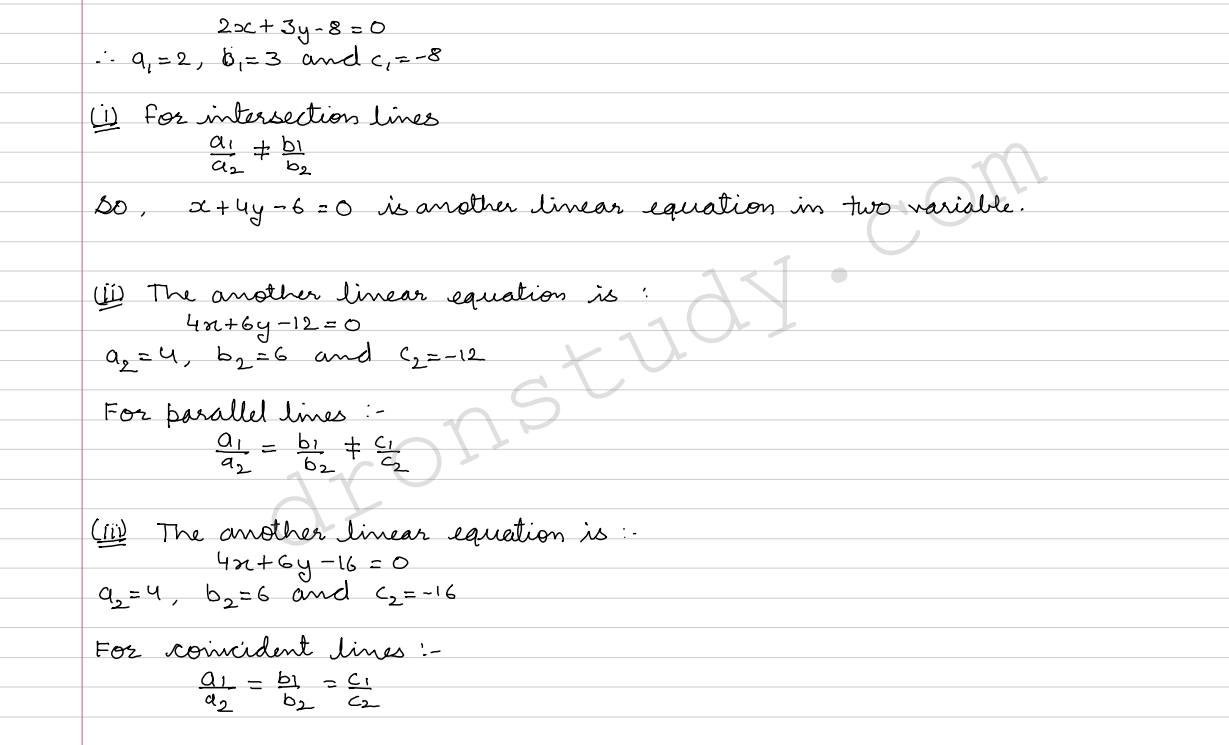 2x + 3y - 8 = 0
∴ a₁ = 2, b₁ = 3 and c₁ = -8
(i) For intersection lines
a₁/a₂ ≠ b₁/b₂
So, x + 4y - 6 = 0 is another linear equation in two variable.
(ii) The another linear equation is :
4x + 6y - 12 = 0
a₂ = 4, b₂ = 6 and c₂ = -12
For parallel lines :-
a₁/a₂ = b₁/b₂ ≠ c₁/c₂
(iii) The another linear equation is :-
4x + 6y - 16 = 0
a₂ = 4, b₂ = 6 and c₂ = -16
For coincident lines :-
a₁/a₂ = b₁/b₂ = c₁/c₂
dronstudy.com